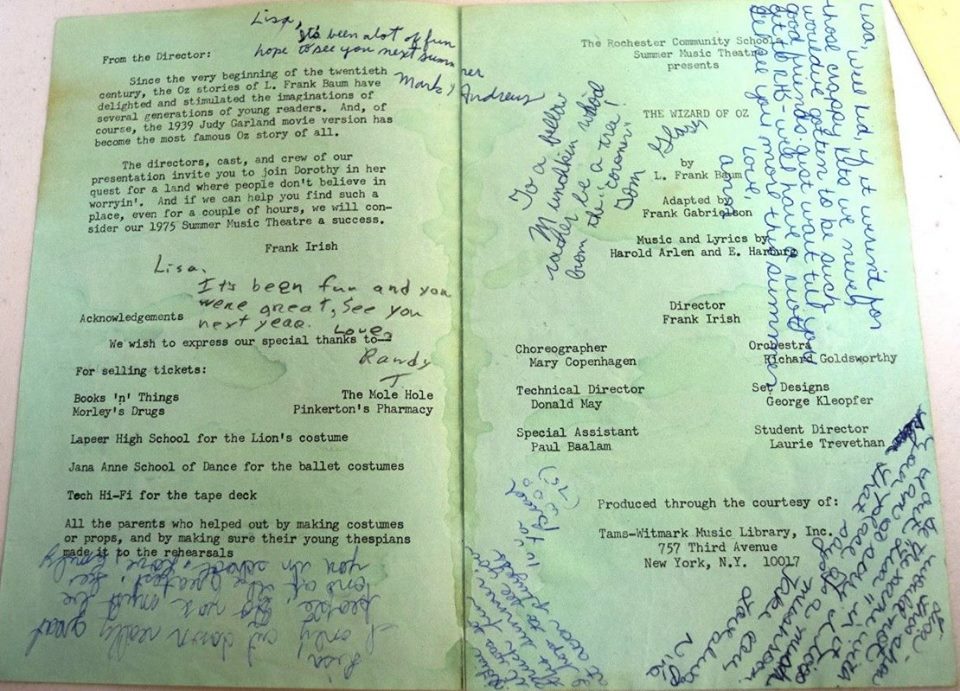 Lisa,
It's been a lot of fun
hope to see you next summer
Mark Andrews
From the Director:
Since the very beginning of the twentieth
century, the Oz stories of L. Frank Baum have
delighted and stimulated the imaginations of
several generations of young readers. And, of
course, the 1939 Judy Garland movie version has
become the most famous Oz story of all.
The directors, cast, and crew of our
presentation invite you to join Dorothy in her
quest for a land where people don't believe in
worryin'. And if we can help you find such a
place, even for a couple of hours, we will con-
sider our 1975 Summer Music Theatre a success.
Frank Irish
Lisa,
It's been fun and you
were great, see you
next year.
Love
Randy
J
Acknowledgements
We wish to express our special thanks to
For selling tickets:
Books 'n' Things
The Mole Hole
Morley's Drugs
Pinkerton's Pharmacy
Lapeer High School for the Lion's costume
Jana Anne School of Dance for the ballet costumes
Tech Hi-Fi for the tape deck
All the parents who helped out by making costumes
or props, and by making sure their young thespians
made it to the rehearsals
Lisa
I only
really great
people.
you in school. Love,
The Rochester Community Schools
Summer Music Theatre
presents
THE WIZARD OF OZ
by
L. Frank Baum
Adapted by
Frank Gabrielson
Music and Lyrics by
Harold Arlen and E. Harburg
Director
Frank Irish
Choreographer
Mary Copenhagen
Orchestra
Richard Goldsworthy
Technical Director
Donald May
Set Designs
George Kleopfer
Special Assistant
Paul Baalam
Student Director
Laurie Trevethan
Produced through the courtesy of:
Tams-Witmark Music Library, Inc.
757 Third Avenue
New York, N.Y. 10017
To a fellow
Munchkin who'd
rather be a tree!
from the "coroner"
Tom
Lisa, Well kid, if it weren't for
those crappy kilts we never
would've gotten to be such
good friends. Just wait till you
get to RHS- we'll have a riot!
see you more this summer
Love,